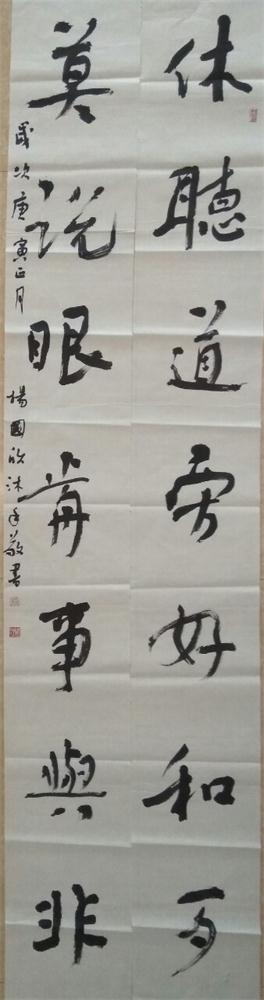 休聽道旁好和歹
莫説眼前事與非
歲次庚寅正月 楊國欣沐手敬書